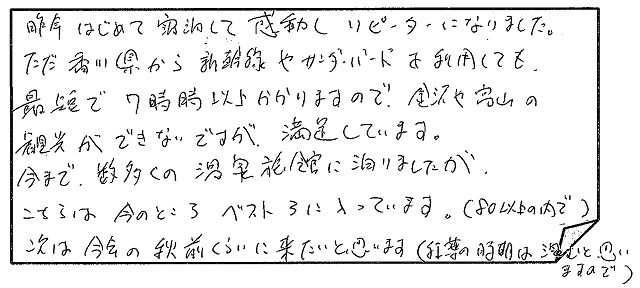 昨年はじめて宿泊して感動しリピーターになりました。
ただ香川県から新幹線やサンダーバードを利用しても、
最短で7時時以上かかりますので、金沢や富山の
観光ができないですが、満足しています。
今まで、数多くの温泉旅館に泊りましたが、
こちらは今のところベスト3に入っています。(80以上の内で)
次は今年の秋前くらいに来たいと思います(紅葉の時期は混むと思い
ますので)